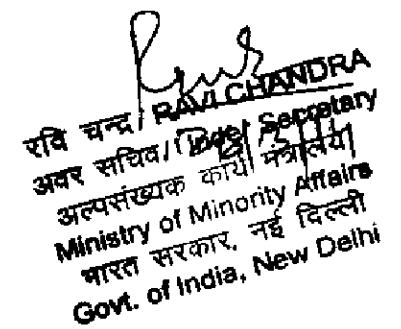 रवि चन्द्र / RAVI CHANDRA
अवर सचिव / Under Secretary
अल्पसंख्यक कार्य मंत्रालय
Ministry of Minority Affairs
भारत सरकार, नई दिल्ली
Govt. of India, New Delhi